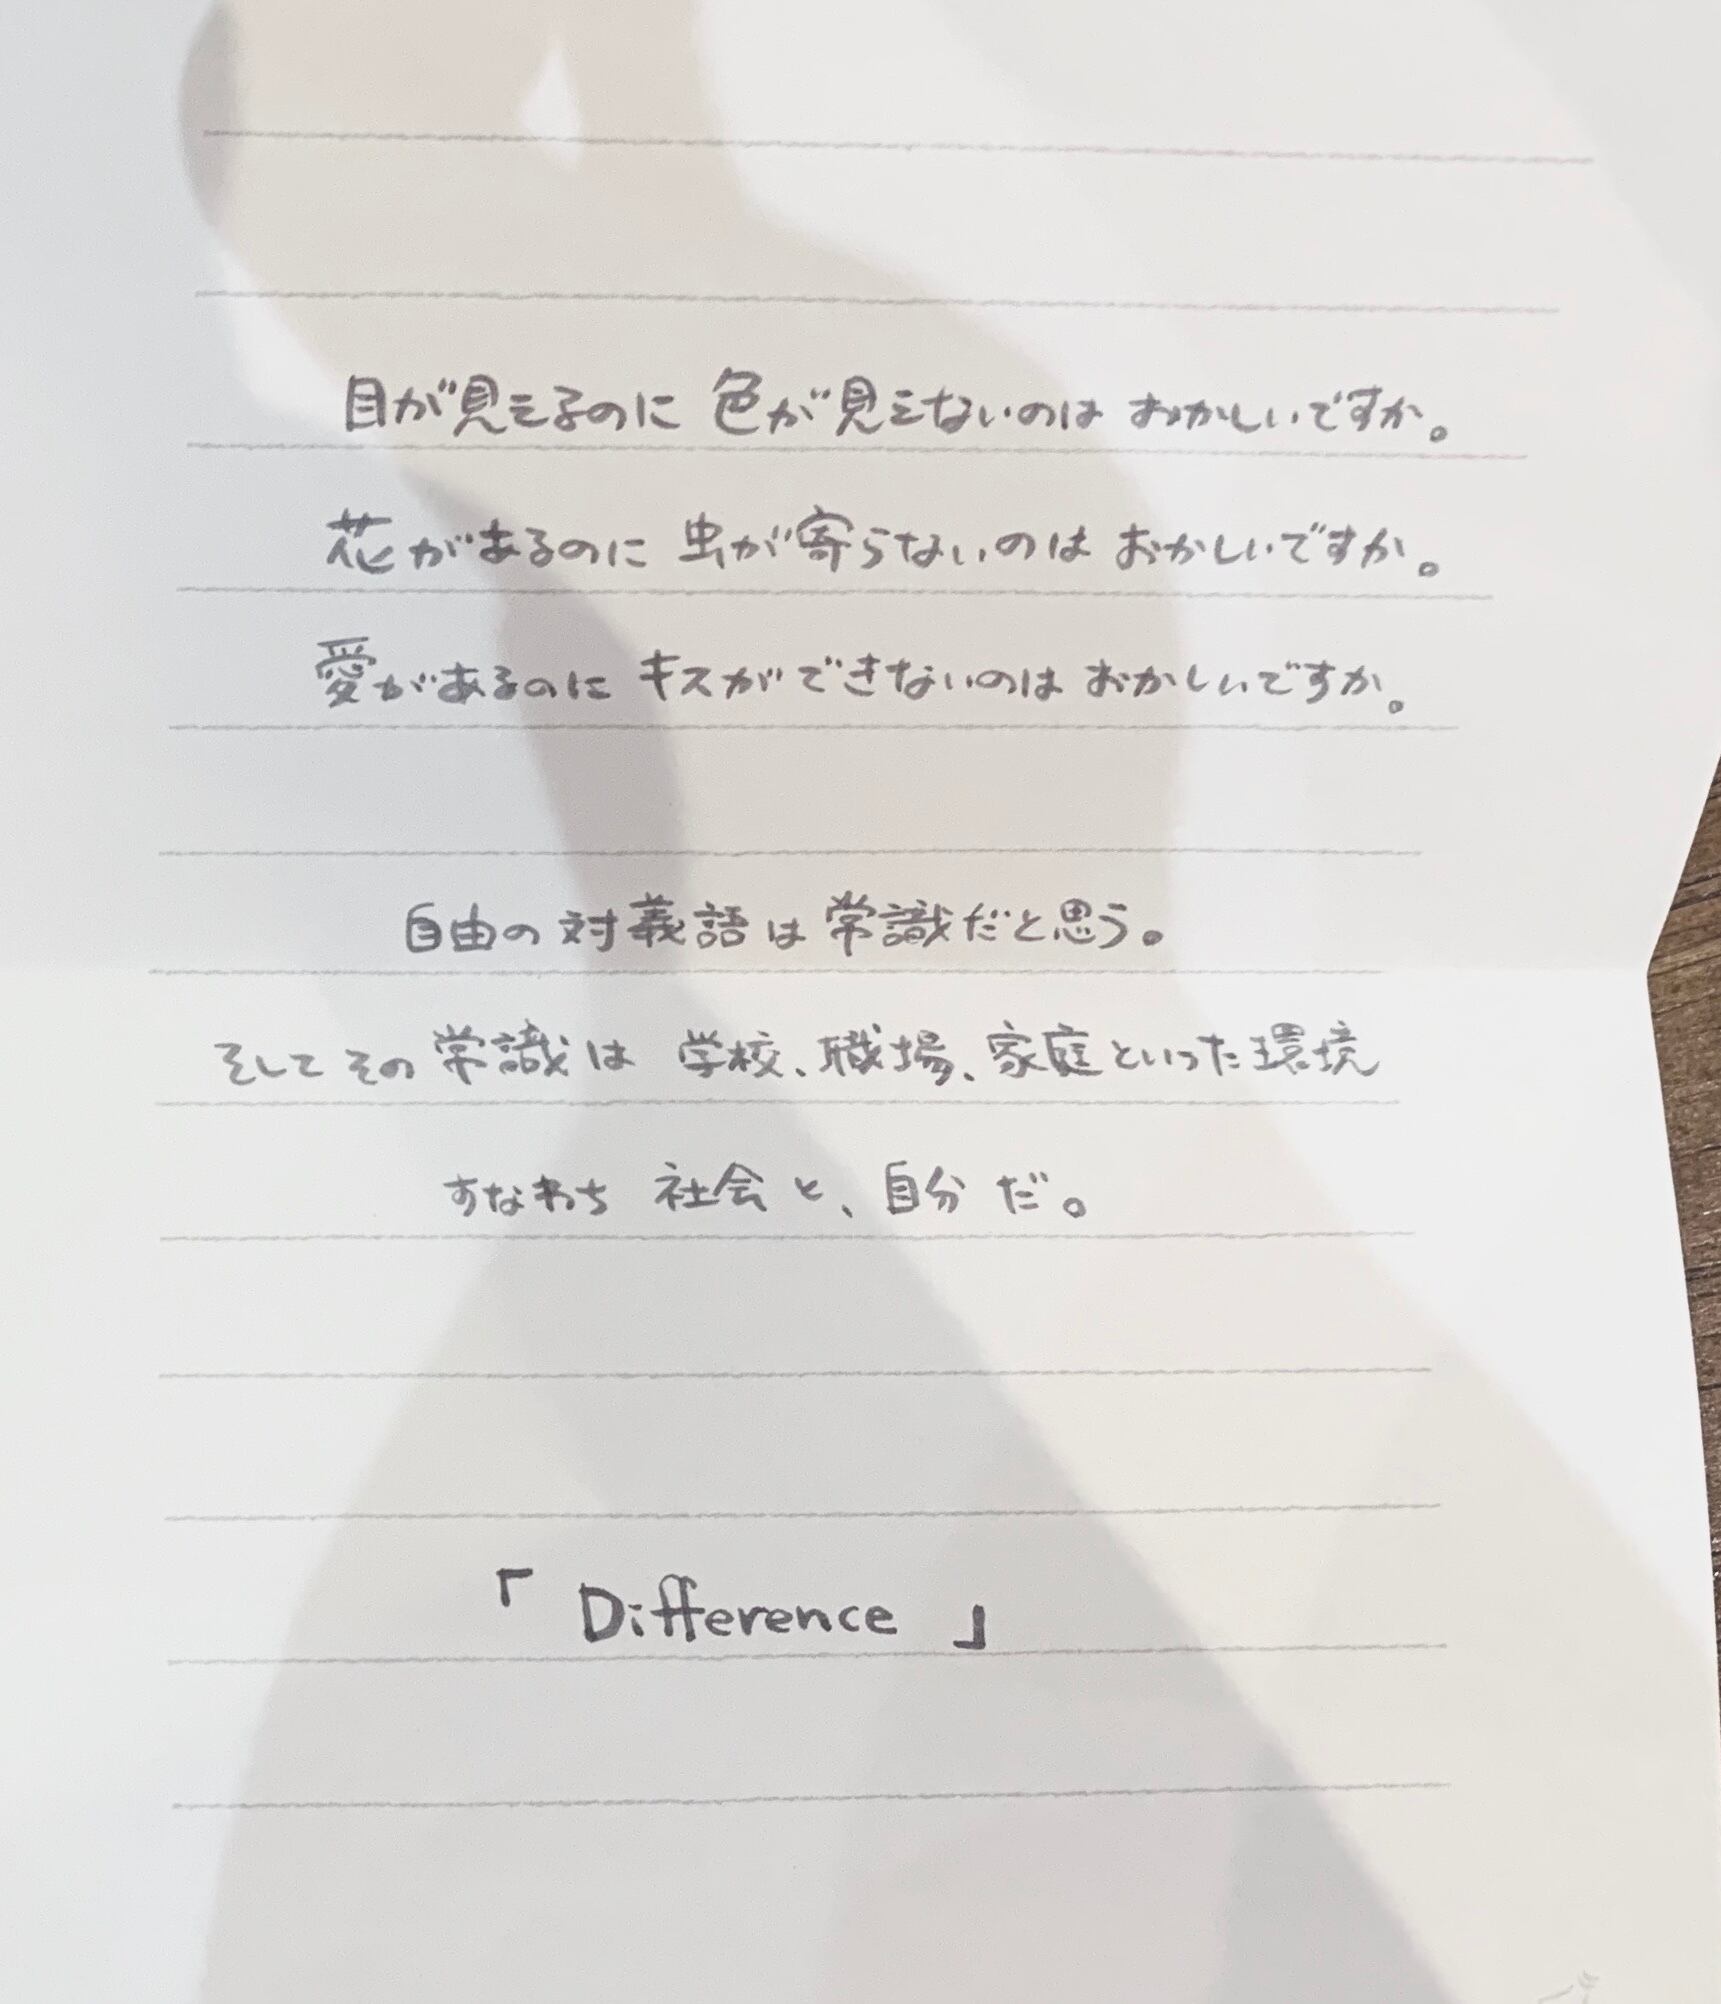 目が見えるのに 色が見えないのは おかしいですか。
花があるのに 虫が寄らないのは おかしいですか。
愛があるのに キスができないのは おかしいですか。
自由の対義語は常識だと思う。
そしてその常識は 学校、職場、家庭といった環境
すなわち 社会と、自分だ。
「 Difference 」